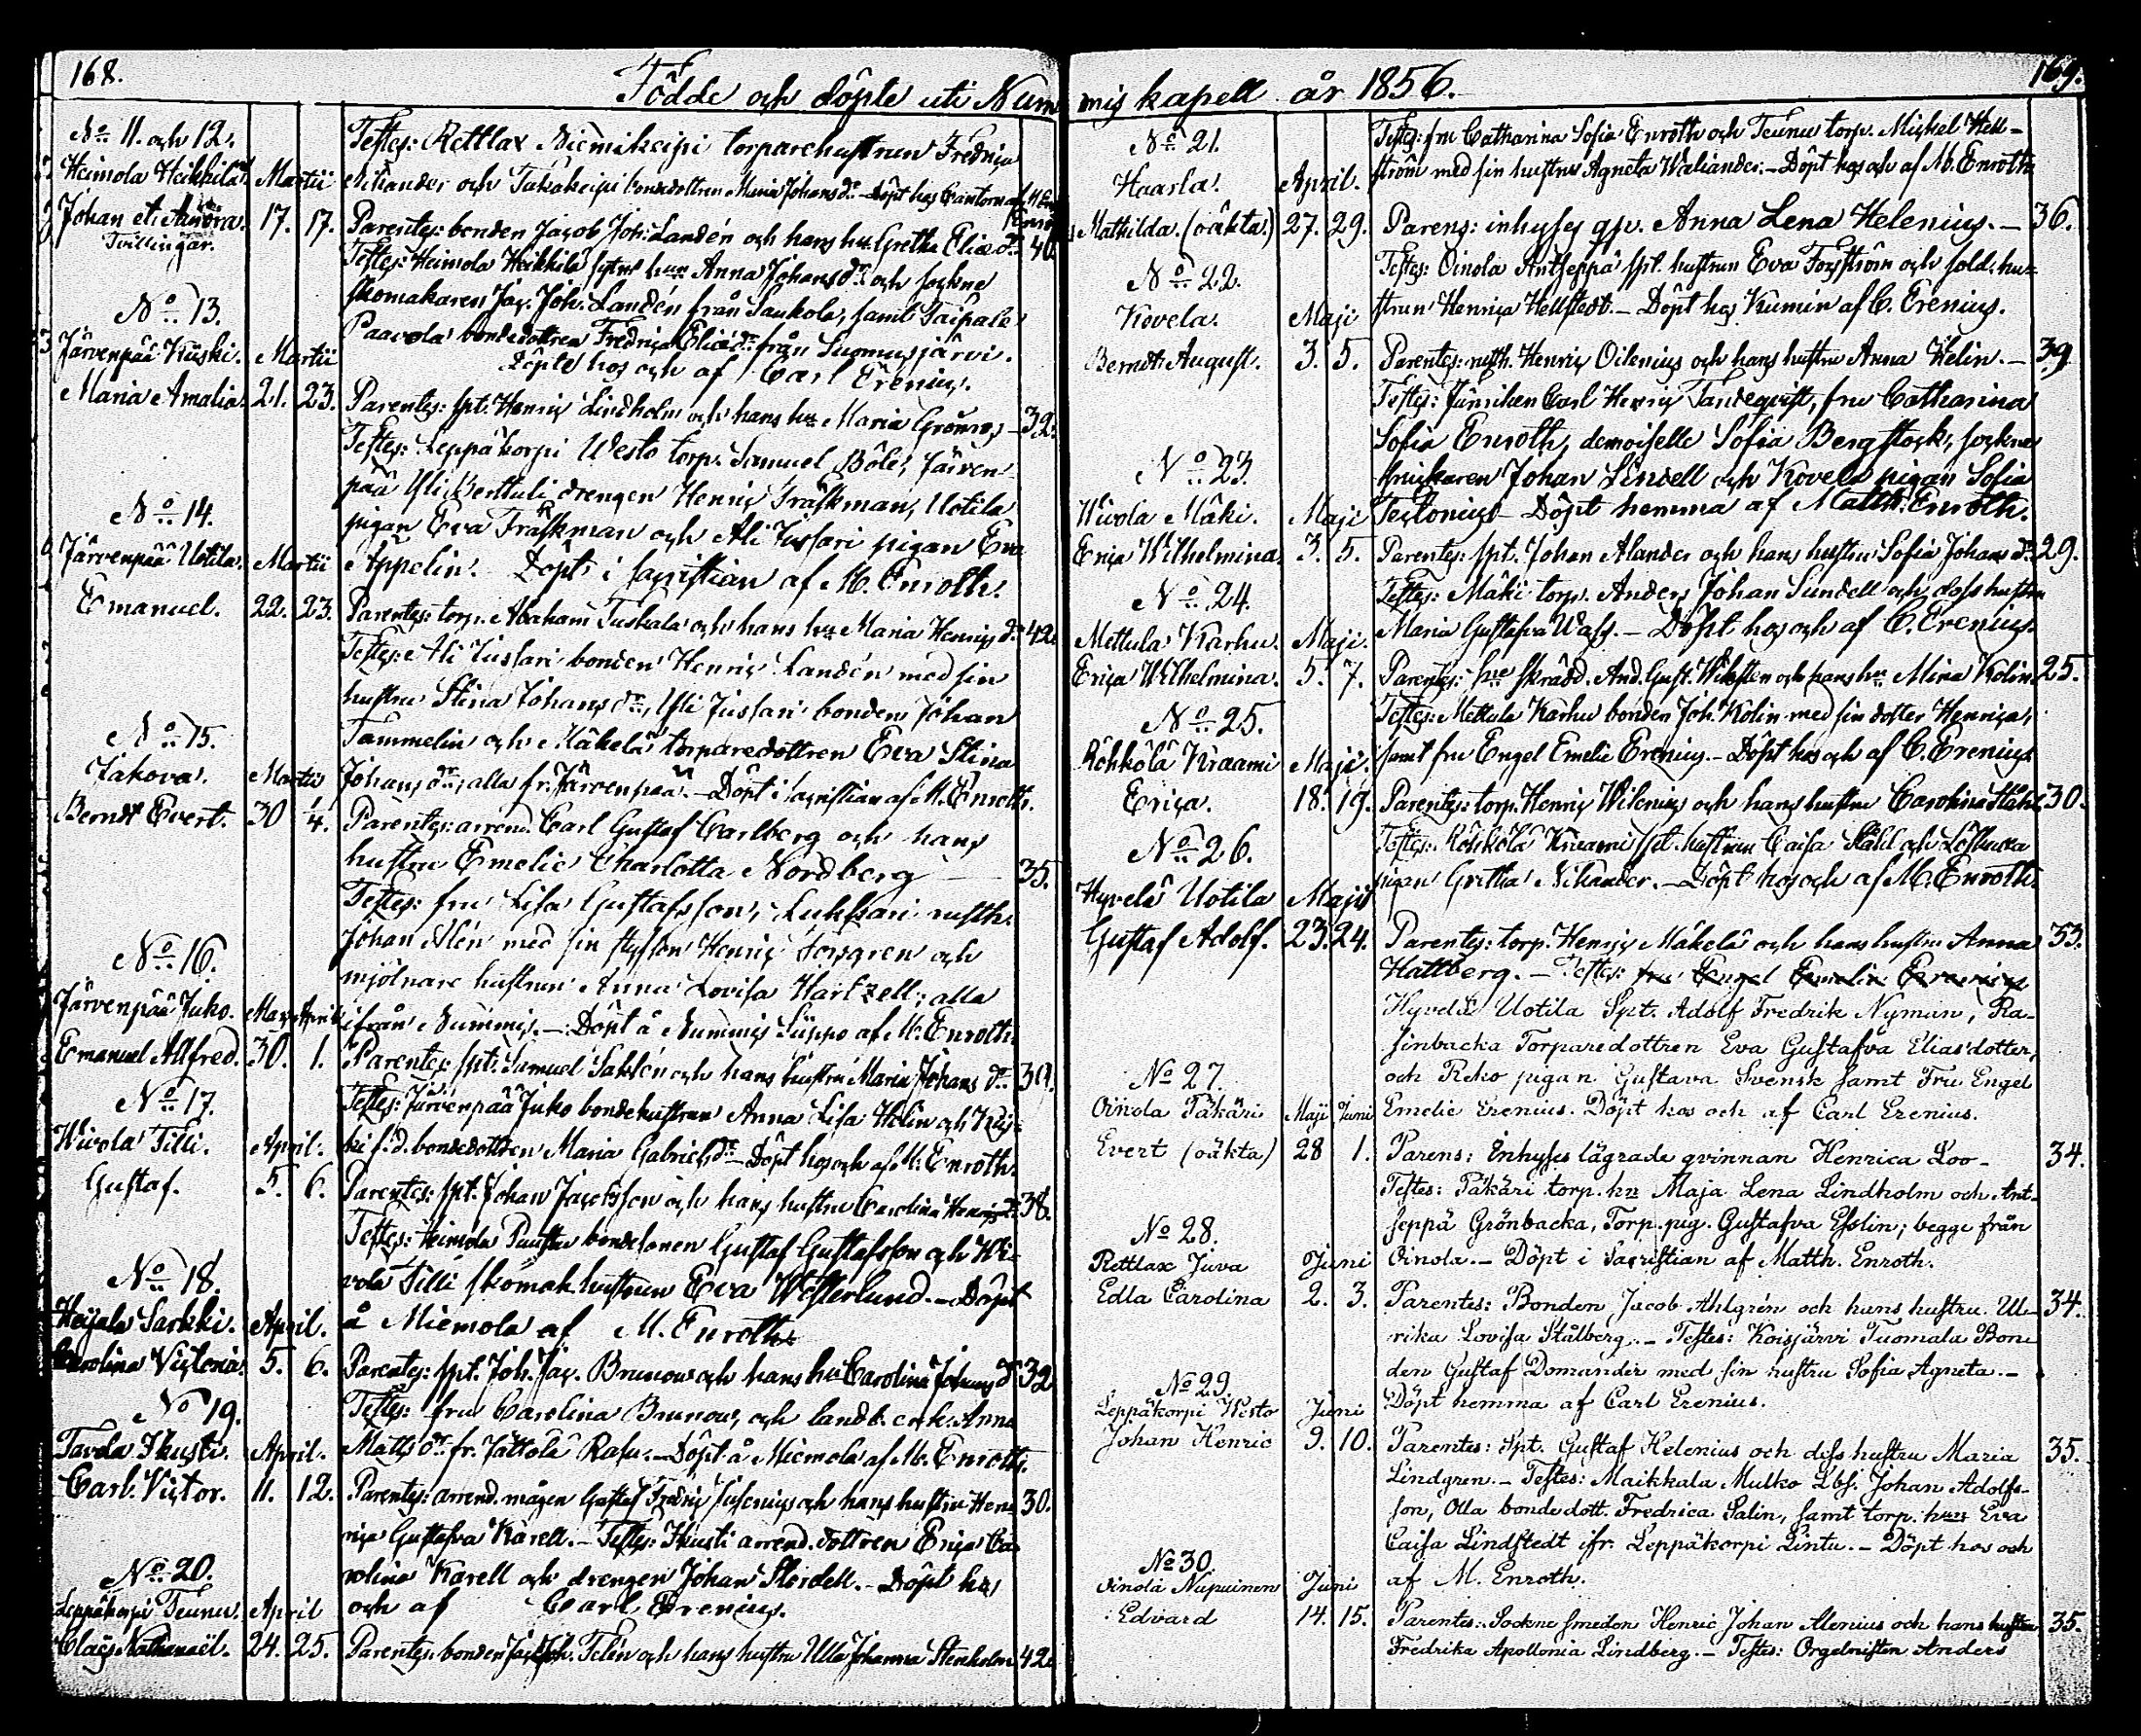 168.
Födde och döpte uti Num
No 11. och 12.
Heimola Heikkilä. Martii
Johan et Andéra. 17. 17.
Tvillingar.
Testes: Rettlax Niemikeipi torparehustrun Fredrica
Nikander och bondedottren Maria Johansdr. Döpt hos Cantorn af M. Enroth
Parentes: bonden Jacob Joh: Landén och hans hu. Gretha Eliædr. 40.
Testes: Heimola Heikkilä sytn. hu. Anna Johansdr och sockne
skomakaren Jac. Joh. Landén från Saukola, samt Saipale
Paavola bondedottren Fredrica Eliædr från Suomusjärvi.
Döpte hos och af Carl Erenius.
No 13.
Järvenpää Kiiski. Martii
Maria Amalia. 21. 23.
Parentes: spt. Henric Lindholm och hans hu. Maria Grönros 32.
Testes: Leppäkorpi Westo torp. Samuel Böle, Järven-
pää Yli Perttuli drengen Henric Träskman, Uotila
pigan Eva Träskman och Ali Jussari pigan Eva
Äppelin. Döpt i sacristian af M. Enroth.
No 14.
Järvenpää Uotila. Martii
Emanuel. 22. 23.
Parentes: torp. Abraham Tuskala och hans hu. Maria Henricsdr 42.
Testes: Ali Jussari bonden Henric Landén med sin
hustru Stina Johansdr, Yli Jussari bonden Johan
Tammelin och Mäkelä torparedottren Eva Stina
Johansdr, alla fr. Järvenpää. – Döpt i sacristian af M. Enroth.
No 15.
Jakova. Martii
Berndt Evert. 30 1/4.
Parentes: arrend. Carl Gustaf Carlberg och hans
hustru Emelie Charlotta Nordberg 35.
Testes: fru Lisa Gustafsson, Lukksari rusth.
Johan Alén med sin styfson Henric Forsgren och
mjölnare hustrun Anna Lovisa Hartzell; alla
ifrån Nummis. – Döpt å Nummis Siippo af M. Enroth.
No 16.
Järvenpää Juko. Mars April
Emanuel Alfred. 30. 1.
Parentes: spt. Samuel Sahlén och hans hustru Maria Johansdr. 39.
Testes: Järvenpää Juko bondehustrun Anna Lisa Helin och Kiis-
ki f. d. bondedottren Maria Gabrielsdr – Döpt hos och af M. Enroth.
No 17.
Wivola Tilli. April.
Gustaf. 5. 6.
Parentes: spt. Johan Jacobsson och hans hustru Carolina Henricsdr. 38.
Testes: Heimola Puusta bondesonen Gustaf Gustafsson och Wi-
vola Tilli skomak. hustrun Eva Westerlund. – Döpt
å Miemola af M. Enroth.
No 18.
Heijala Sarkki. April.
Carolina Victoria. 5. 6.
Parentes: spt. Joh. Jac. Brunow och hans hu. Carolina Johansdr 32
Testes: fru Carolina Brunow, och landb. enk. Anna
Mattsdr fr. Jättölä Rasu. – Döpt å Miemola af M. Enroth.
No 19.
Tavola Husti. April.
Carl Victor. 11. 12.
Parentes: arrend. mågen Gustaf Fredric Susenius och hans hustru Hen- 30.
rica Gustafva Karell. – Testes: Husti arrend. dottren Erica Ca-
rolina Karell och drengen Johan Skindell. – Döpt hos
och af Carl Erenius.
No 20.
Leppäkorpi Teunu. April
Claës Nathanaël. 24. 25.
Parentes: bonden Jac. Joh. Telén och hans hustru Ulla Johanna Stenholm 42.
mis kapell år 1856. 169.
No 21.
Haarla. April.
Mathilda. (oäkta.) 27. 29.
Testes: fru Catharina Sofia Enroth och Teunu torp. Michel Hell-
ström med sin hustru Agneta Waliander. – Döpt hos och af M. Enroth
Parens: inhyses qp. Anna Lena Helenius. – 36.
No 22.
Kovela. Maji
Berndt August. 3. 5.
Testes: Oinola Antseppä spt. hustrun Eva Forsström och sold. hu-
strun Henrica Hellstedt. – Döpt hos Kumin af C. Erenius.
Parentes: rusth. Henric Oilenius och hans hustru Anna Helin. – 39.
No 23.
Wivola Mäki. Maji
Erica Wilhelmina. 3. 5.
Testes: Junikern Carl Henric Tandeqvist, fru Catharina
Sofia Enroth, demoiselle Sofia Bergstock, sockne
snickaren Johan Lindell och Kovela pigan Sofia
Teslonius – Döpt hemma af Matth. Enroth.
Parentes: spt. Johan Alander och hans hustru Sofia Johansdr. 29.
No 24.
Mettula Karhu. Maji.
Erica Wilhelmina. 5. 7.
Testes: Mäki torp. Anders Johan Sundell och dess hustru
Maria Gustafva Wass. – Döpt hos och af C. Erenius.
Parentes: sne skrädd. And. Gust. Wiksten och hans hu. Mina Kolin. 25.
No 25.
Röhkölä Kraami Maji.
Erica. 18. 19.
Testes: Mettula Karhu bonden Joh. Kolin med sin dotter Henrica,
samt fru Engel Emelie Erenius. – Döpt hos och af C. Erenius
Parentes: torp. Henric Wilenius och hans hustru Carolina Ståhl. 30.
No 26.
Hyvelä Uotila Maji
Gustaf Adolf. 23. 24.
Testes: Röhkölä Kraami spt. hustrun Caisa Ståhl och
pigan Gretha Nikander. – Döpt hos och af M. Enroth.
Parentes: torp. Henric Mäkelä och hans hustru Anna 33.
Hattberg. – Testes: fru Engel Emelie Erenius
Hyvelä Uotila Spt. Adolf Fredrik Nyman, Ra-
sinbacka Torparedottren Eva Gustafva Eliasdotter,
och Reko pigan Gustava Svensk samt Fru Engel
Emelie Erenius. Döpt hos och af Carl Erenius.
No 27.
Oinola Päkäri Maji Juni
Evert (oäkta) 28 1.
Parens: Inhyses lägrade qvinnan Henrica Loo- 34.
Testes: Päkäri torp. hu Maja Lena Lindholm och Ant-
seppä Grönbacka, Torp. pig. Gustafva Esslin; begge från
Oinola. – Döpt i Sacristian af Matth. Enroth.
No 28.
Rettlax Juva Juni
Edla Carolina 2. 3.
Parentes: Bonden Jacob Ahlgrén och hans hustru Ul- 34.
rika Lovisa Stålberg. – Testes: Koisjärvi Tuomala Bon-
den Gustaf Domander med sin hustru Sofia Agneta. –
Döpt hemma af Carl Erenius.
No 29.
Leppäkorpi Westo Juni
Johan Henric 9. 10.
Parentes: Spt. Gustaf Helenius och dess hustru Maria 35.
Lindgren. – Testes: Maikkala Mulko Lbs. Johan Adolfs-
son, Olla bondedott. Fredrica Salin, samt torp. hun Eva
Caisa Lindstedt ifr. Leppäkorpi Lintu. – Döpt hos och
af M. Enroth.
No 30.
Oinola Nupuinen Juni
Edvard 14. 15.
Parentes: Sockne smeden Henric Johan Alenius och hans hustru 35.
Fredrika Apollonia Lindberg. – Testes: Orgelnisten Anders